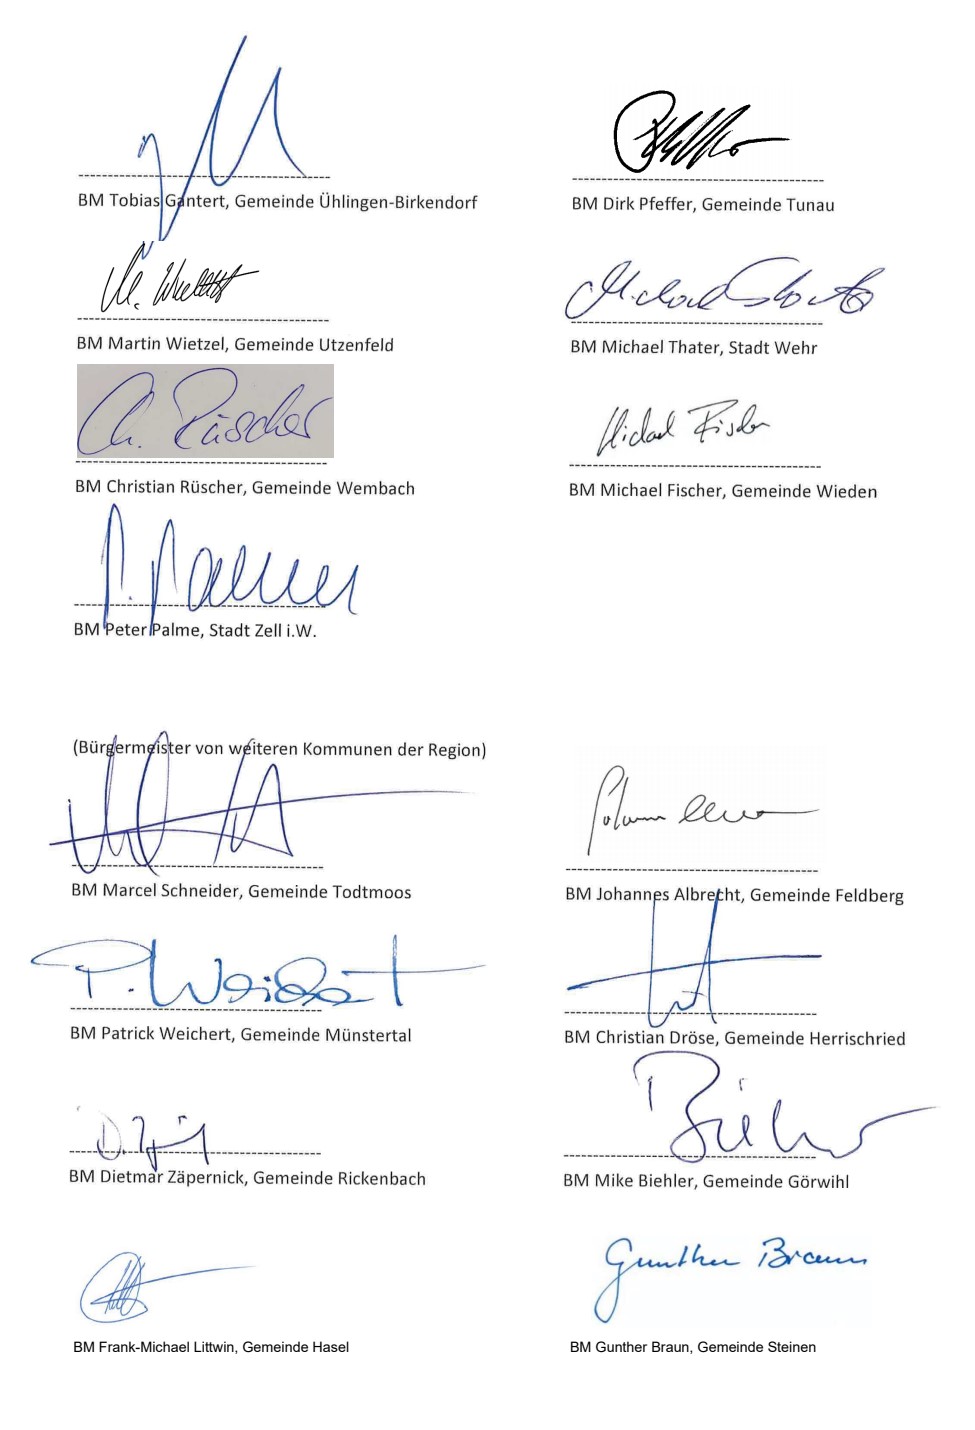 BM Tobias Gantert, Gemeinde Ühlingen-Birkendorf
BM Dirk Pfeffer, Gemeinde Tunau
M. Wietzel
BM Martin Wietzel, Gemeinde Utzenfeld
Michael Thater
BM Michael Thater, Stadt Wehr
Ch. Rüscher
BM Christian Rüscher, Gemeinde Wembach
Michael Fischer
BM Michael Fischer, Gemeinde Wieden
P. Palme
BM Peter Palme, Stadt Zell i.W.
(Bürgermeister von weiteren Kommunen der Region)
BM Marcel Schneider, Gemeinde Todtmoos
BM Johannes Albrecht, Gemeinde Feldberg
P. Weichert
BM Patrick Weichert, Gemeinde Münstertal
BM Christian Dröse, Gemeinde Herrischried
BM Dietmar Zäpernick, Gemeinde Rickenbach
Biehler
BM Mike Biehler, Gemeinde Görwihl
Gunther Braun
BM Frank-Michael Littwin, Gemeinde Hasel
BM Gunther Braun, Gemeinde Steinen